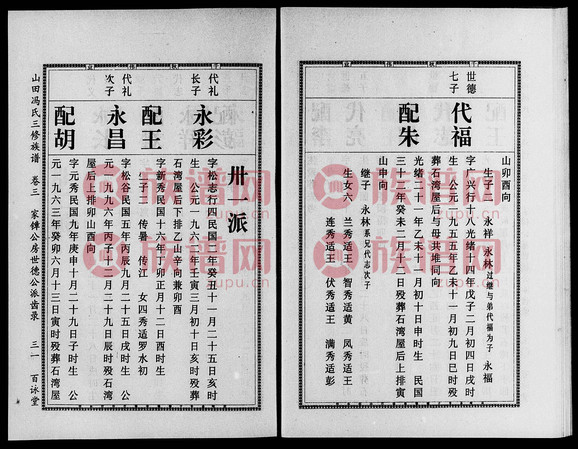 山卯酉向
生子二 永祥 永林过继与弟代福为子 永福
世德七子
代福
字广兴行十八光绪十四年戊子二月初四日戌时
生 公元一九五五年乙未十一月初九日巳时殁
葬石湾屋后与母共堆同向
配朱
光绪二十一年乙未十一月初十日申时生 民国
三十二年癸未二月十八日殁葬石湾屋后上排寅
山申向
继子 永林系兄代志次子
生女六 兰秀适王 智秀适黄 凤秀适王
连秀适王 伏秀适王 满秀适彭
卅一派
代礼长子
永彩
字松志行四民国二年癸丑十一月二十五日亥时
生 公元一九八六年丙寅三月初十日亥时殁葬
石湾屋后下排乙山辛向兼卯酉
配王
字新秀民国十六年丁卯正月十二日酉时生
子二 传誉 传江 女四秀适罗水初
代礼次子
永昌
字松谷民国五年丙辰九月二十五日戌时生 公
元一九九六年丙子十二月二十九日辰时殁石湾
屋后上排卯山酉向
配胡
字元秀民国九年庚申十月二十九日子时生 公
元一九六三年癸卯六月十三日寅时殁葬石湾屋
山田冯氏三修族谱 卷三 家铎公房世德公派齿录 三一 百诚堂
族谱网
zupu.cn
族谱网
zupu.cn